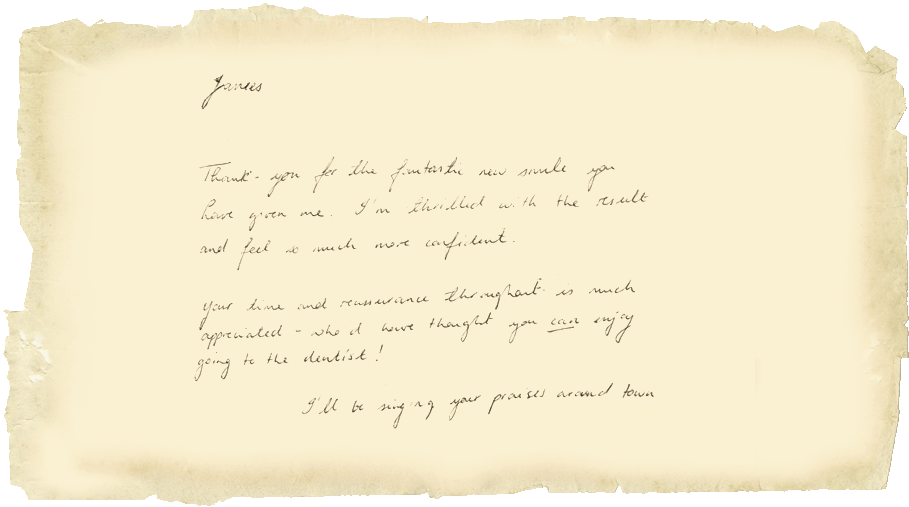 James
Thank-you for the fantastic new smile you
have given me. I'm thrilled with the result
and feel so much more confident.
Your time and reassurance throughout is much
appreciated - who'd have thought you can enjoy
going to the dentist!
I'll be singing your praises around town